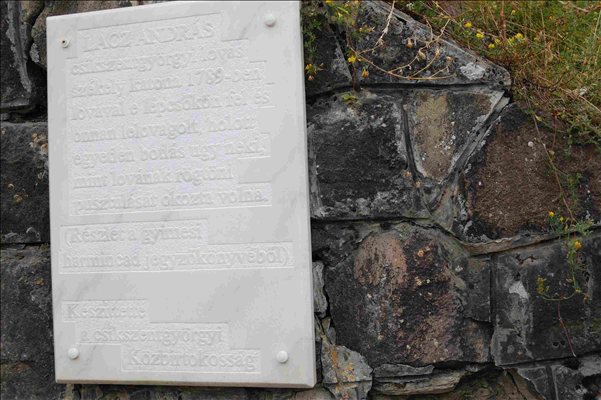 LACZ ANDRÁS
csíkszentgyörgyi lovas
székely katona 1789-ben
lovával e lépcsőkön fel és
onnan lelovagolt, holott
egyetlen botlás úgy neki,
mint lovának rögtöni
pusztulását okozta volna.
(Részlet a gyimesi
harmincad jegyzőkönyvéből)
Készíttette
a csíkszentgyörgyi
Közbirtokosság